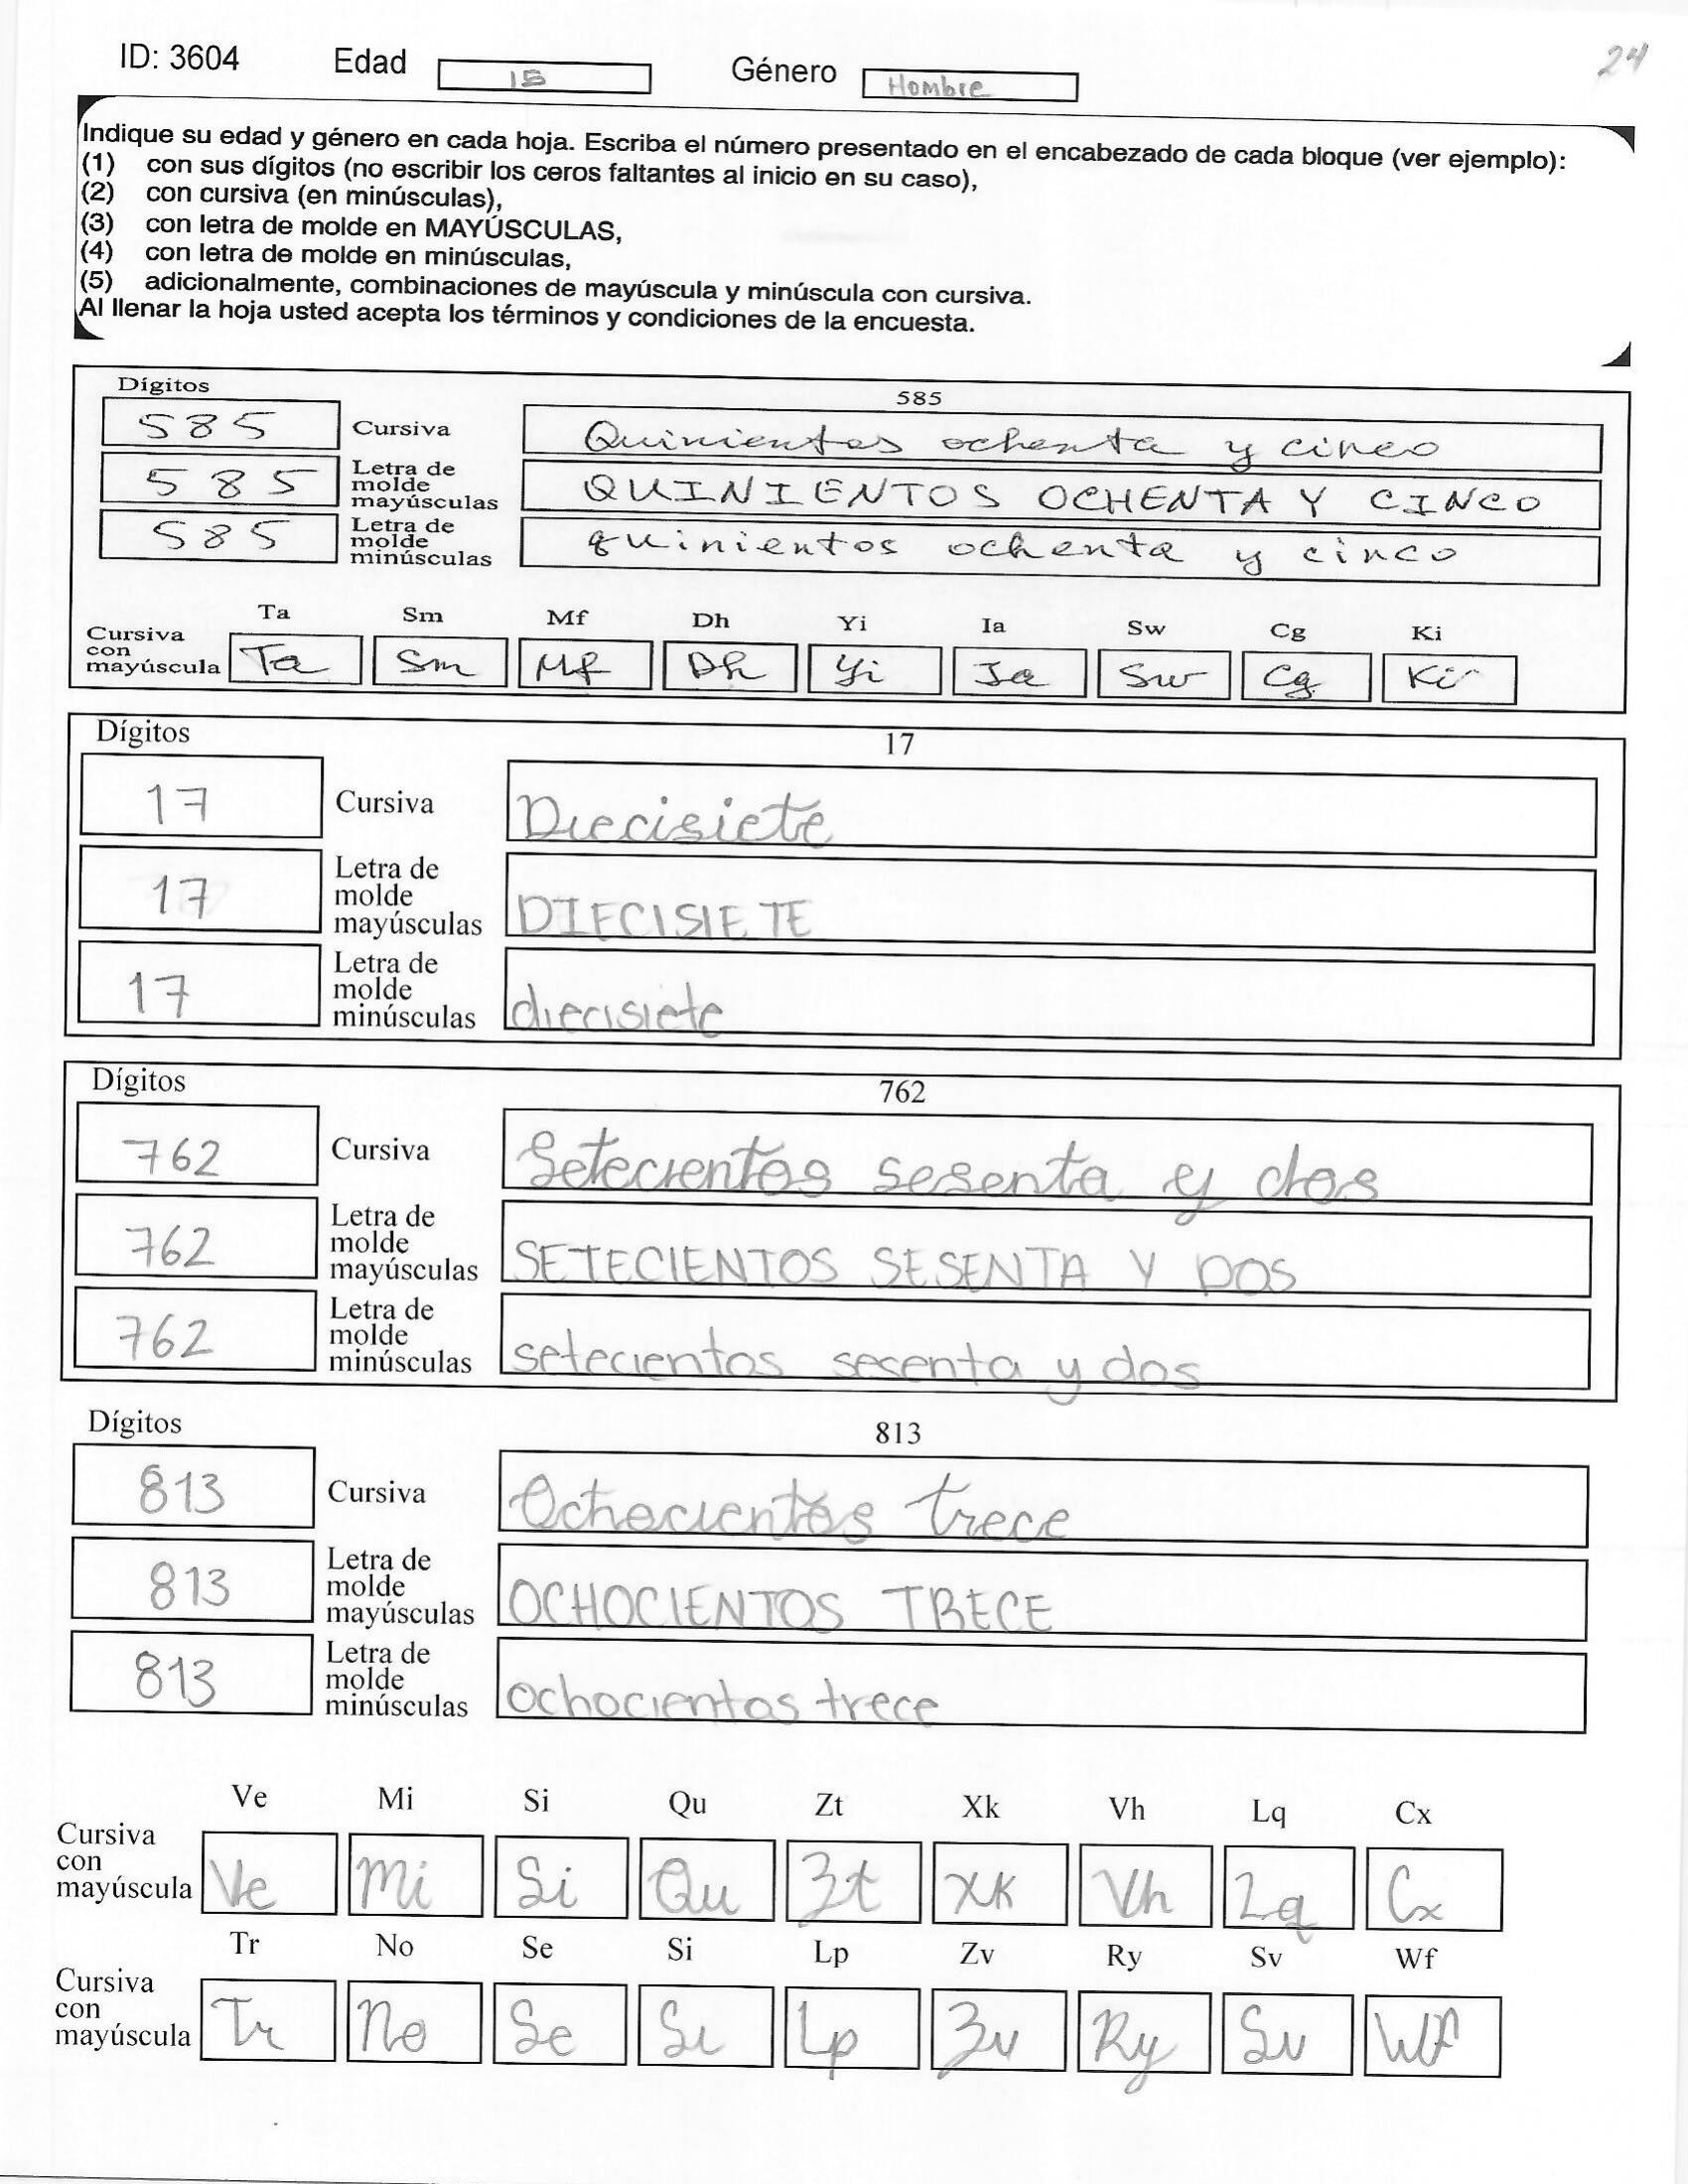 ID: 3604 Edad 15 Género Hombre 24
Indique su edad y género en cada hoja. Escriba el número presentado en el encabezado de cada bloque (ver ejemplo):
(1) con sus dígitos (no escribir los ceros faltantes al inicio en su caso),
(2) con cursiva (en minúsculas),
(3) con letra de molde en MAYÚSCULAS,
(4) con letra de molde en minúsculas,
(5) adicionalmente, combinaciones de mayúscula y minúscula con cursiva.
Al llenar la hoja usted acepta los términos y condiciones de la encuesta.
Dígitos 585
585 Cursiva Quinientos ochenta y cinco
585 Letra de molde mayúsculas QUINIENTOS OCHENTA Y CINCO
585 Letra de molde minúsculas quinientos ochenta y cinco
Ta Sm Mf Dh Yi Ia Sw Cg Ki
Cursiva con mayúscula Ta Sm Mf Dh Yi Ia Sw Cg Ki
Dígitos 17
17 Cursiva Diecisiete
17 Letra de molde mayúsculas DIECISIETE
17 Letra de molde minúsculas diecisiete
Dígitos 762
762 Cursiva Setecientos sesenta y dos
762 Letra de molde mayúsculas SETECIENTOS SESENTA Y DOS
762 Letra de molde minúsculas setecientos sesenta y dos
Dígitos 813
813 Cursiva Ochocientos trece
813 Letra de molde mayúsculas OCHOCIENTOS TRECE
813 Letra de molde minúsculas ochocientos trece
Ve Mi Si Qu Zt Xk Vh Lq Cx
Cursiva con mayúscula Ve Mi Si Qu Zt Xk Vh Lq Cx
Tr No Se Si Lp Zv Ry Sv Wf
Cursiva con mayúscula Tr No Se Si Lp Zv Ry Sv Wf